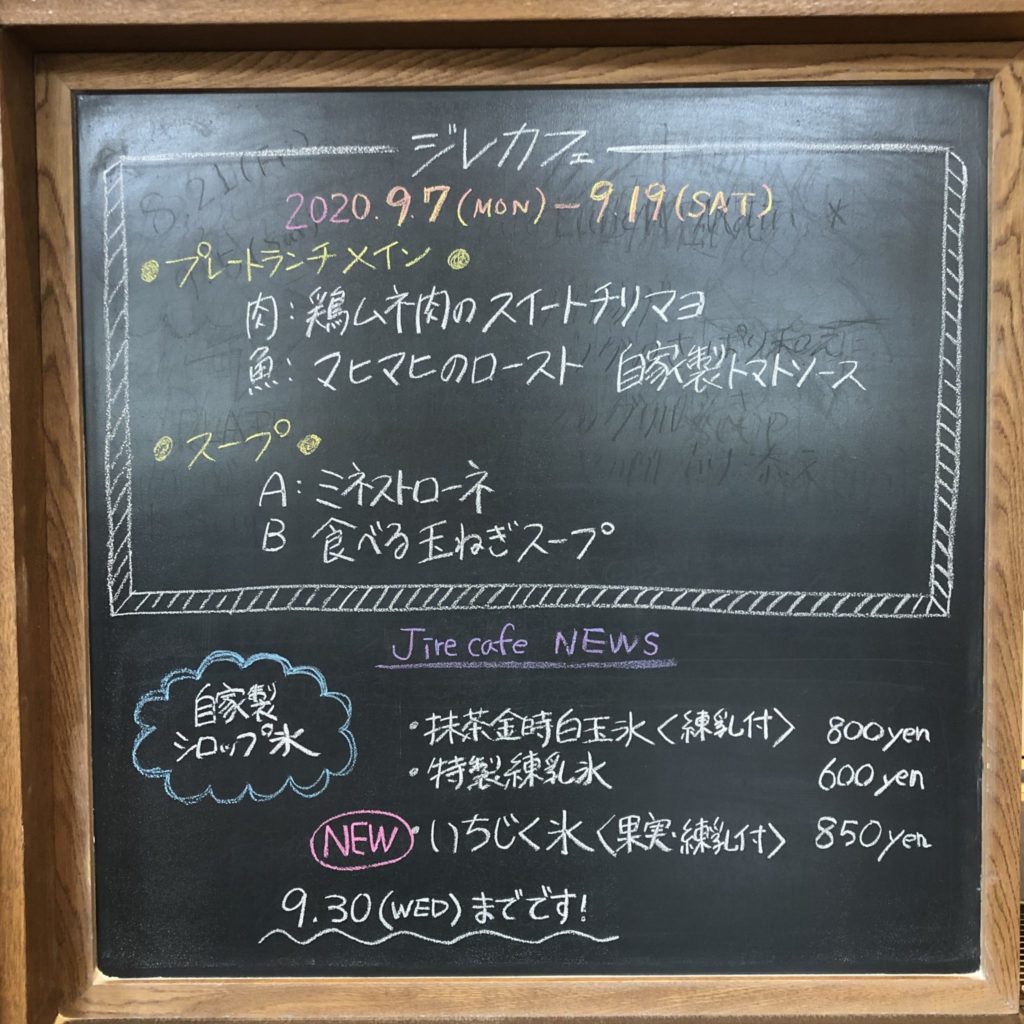 ジレカフェ
2020.9.7(MON)-9.19(SAT)
プレートランチメイン
肉:鶏ムネ肉のスイートチリマヨ
魚:マヒマヒのロースト 自家製トマトソース
スープ
A:ミネストローネ
B 食べる玉ねぎスープ
Jire cafe NEWS
自家製
シロップ氷
・抹茶金時白玉氷〈練乳付〉 800yen
・特製練乳氷 600yen
NEW・いちじく氷〈果実・練乳付〉 850yen
9.30(WED)までです!